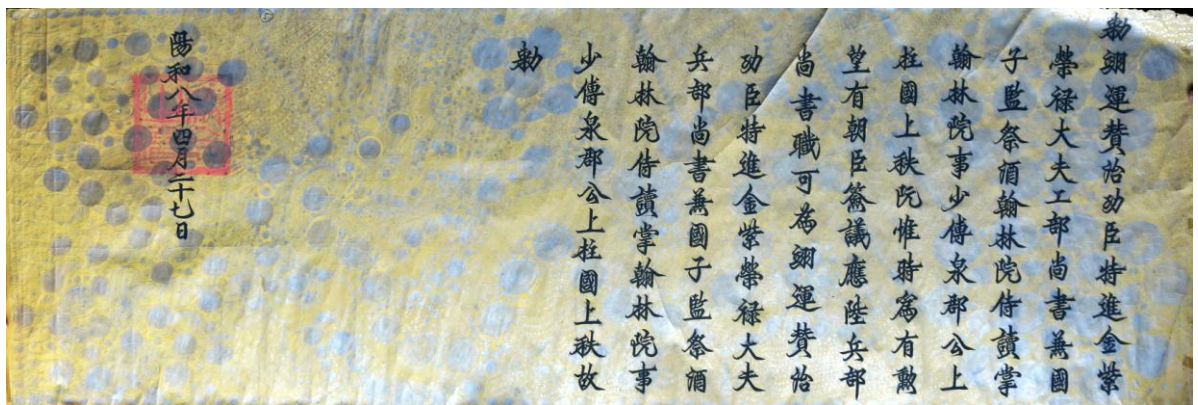 勅翊運贊治功臣特進金紫
榮禄大夫工部尚書兼國
子監祭酒翰林院侍讀掌
翰林院事少傅泉郡公上
柱國上秩阮惟時爲有勲
望有朝臣僉議應陞兵部
尚書職可爲翊運贊治
功臣特進金紫榮禄大夫
兵部尚書兼國子監祭酒
翰林院侍讀掌翰林院事
少傅泉郡公上柱國上秩故
勅
陽和八年四月二十七日